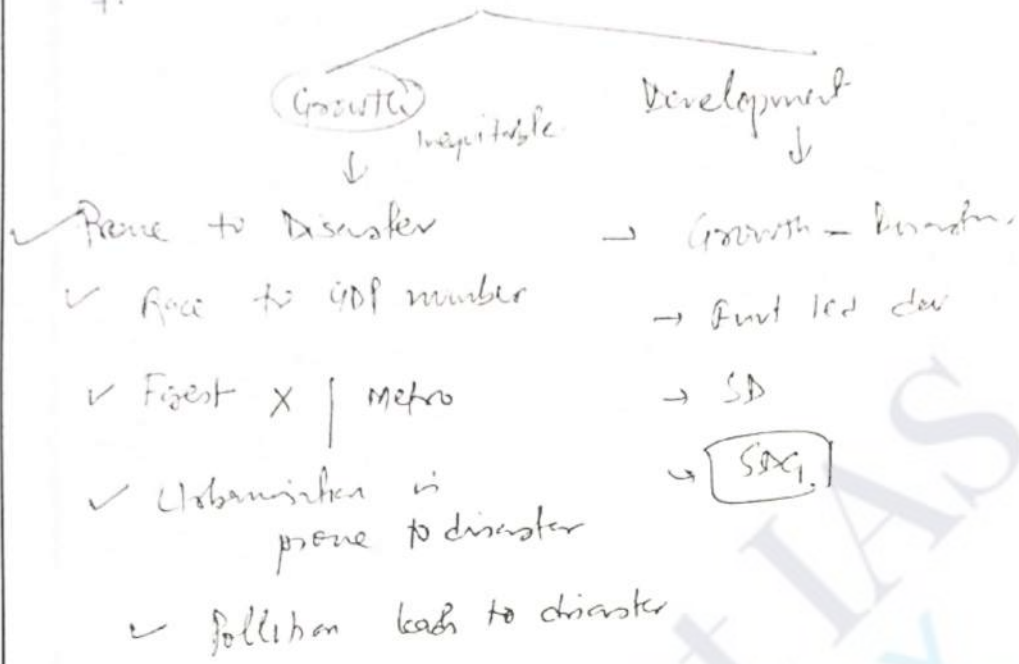 Growth Development
↓ Inequitable ↓
✓ Prone to Disaster → Growth - Disaster
✓ Race to GDP number → led dev
✓ Forest X | Metro → SD
✓ Urbanisation is → SDG.
prone to disaster
✓ Pollution leads to disaster
IAS